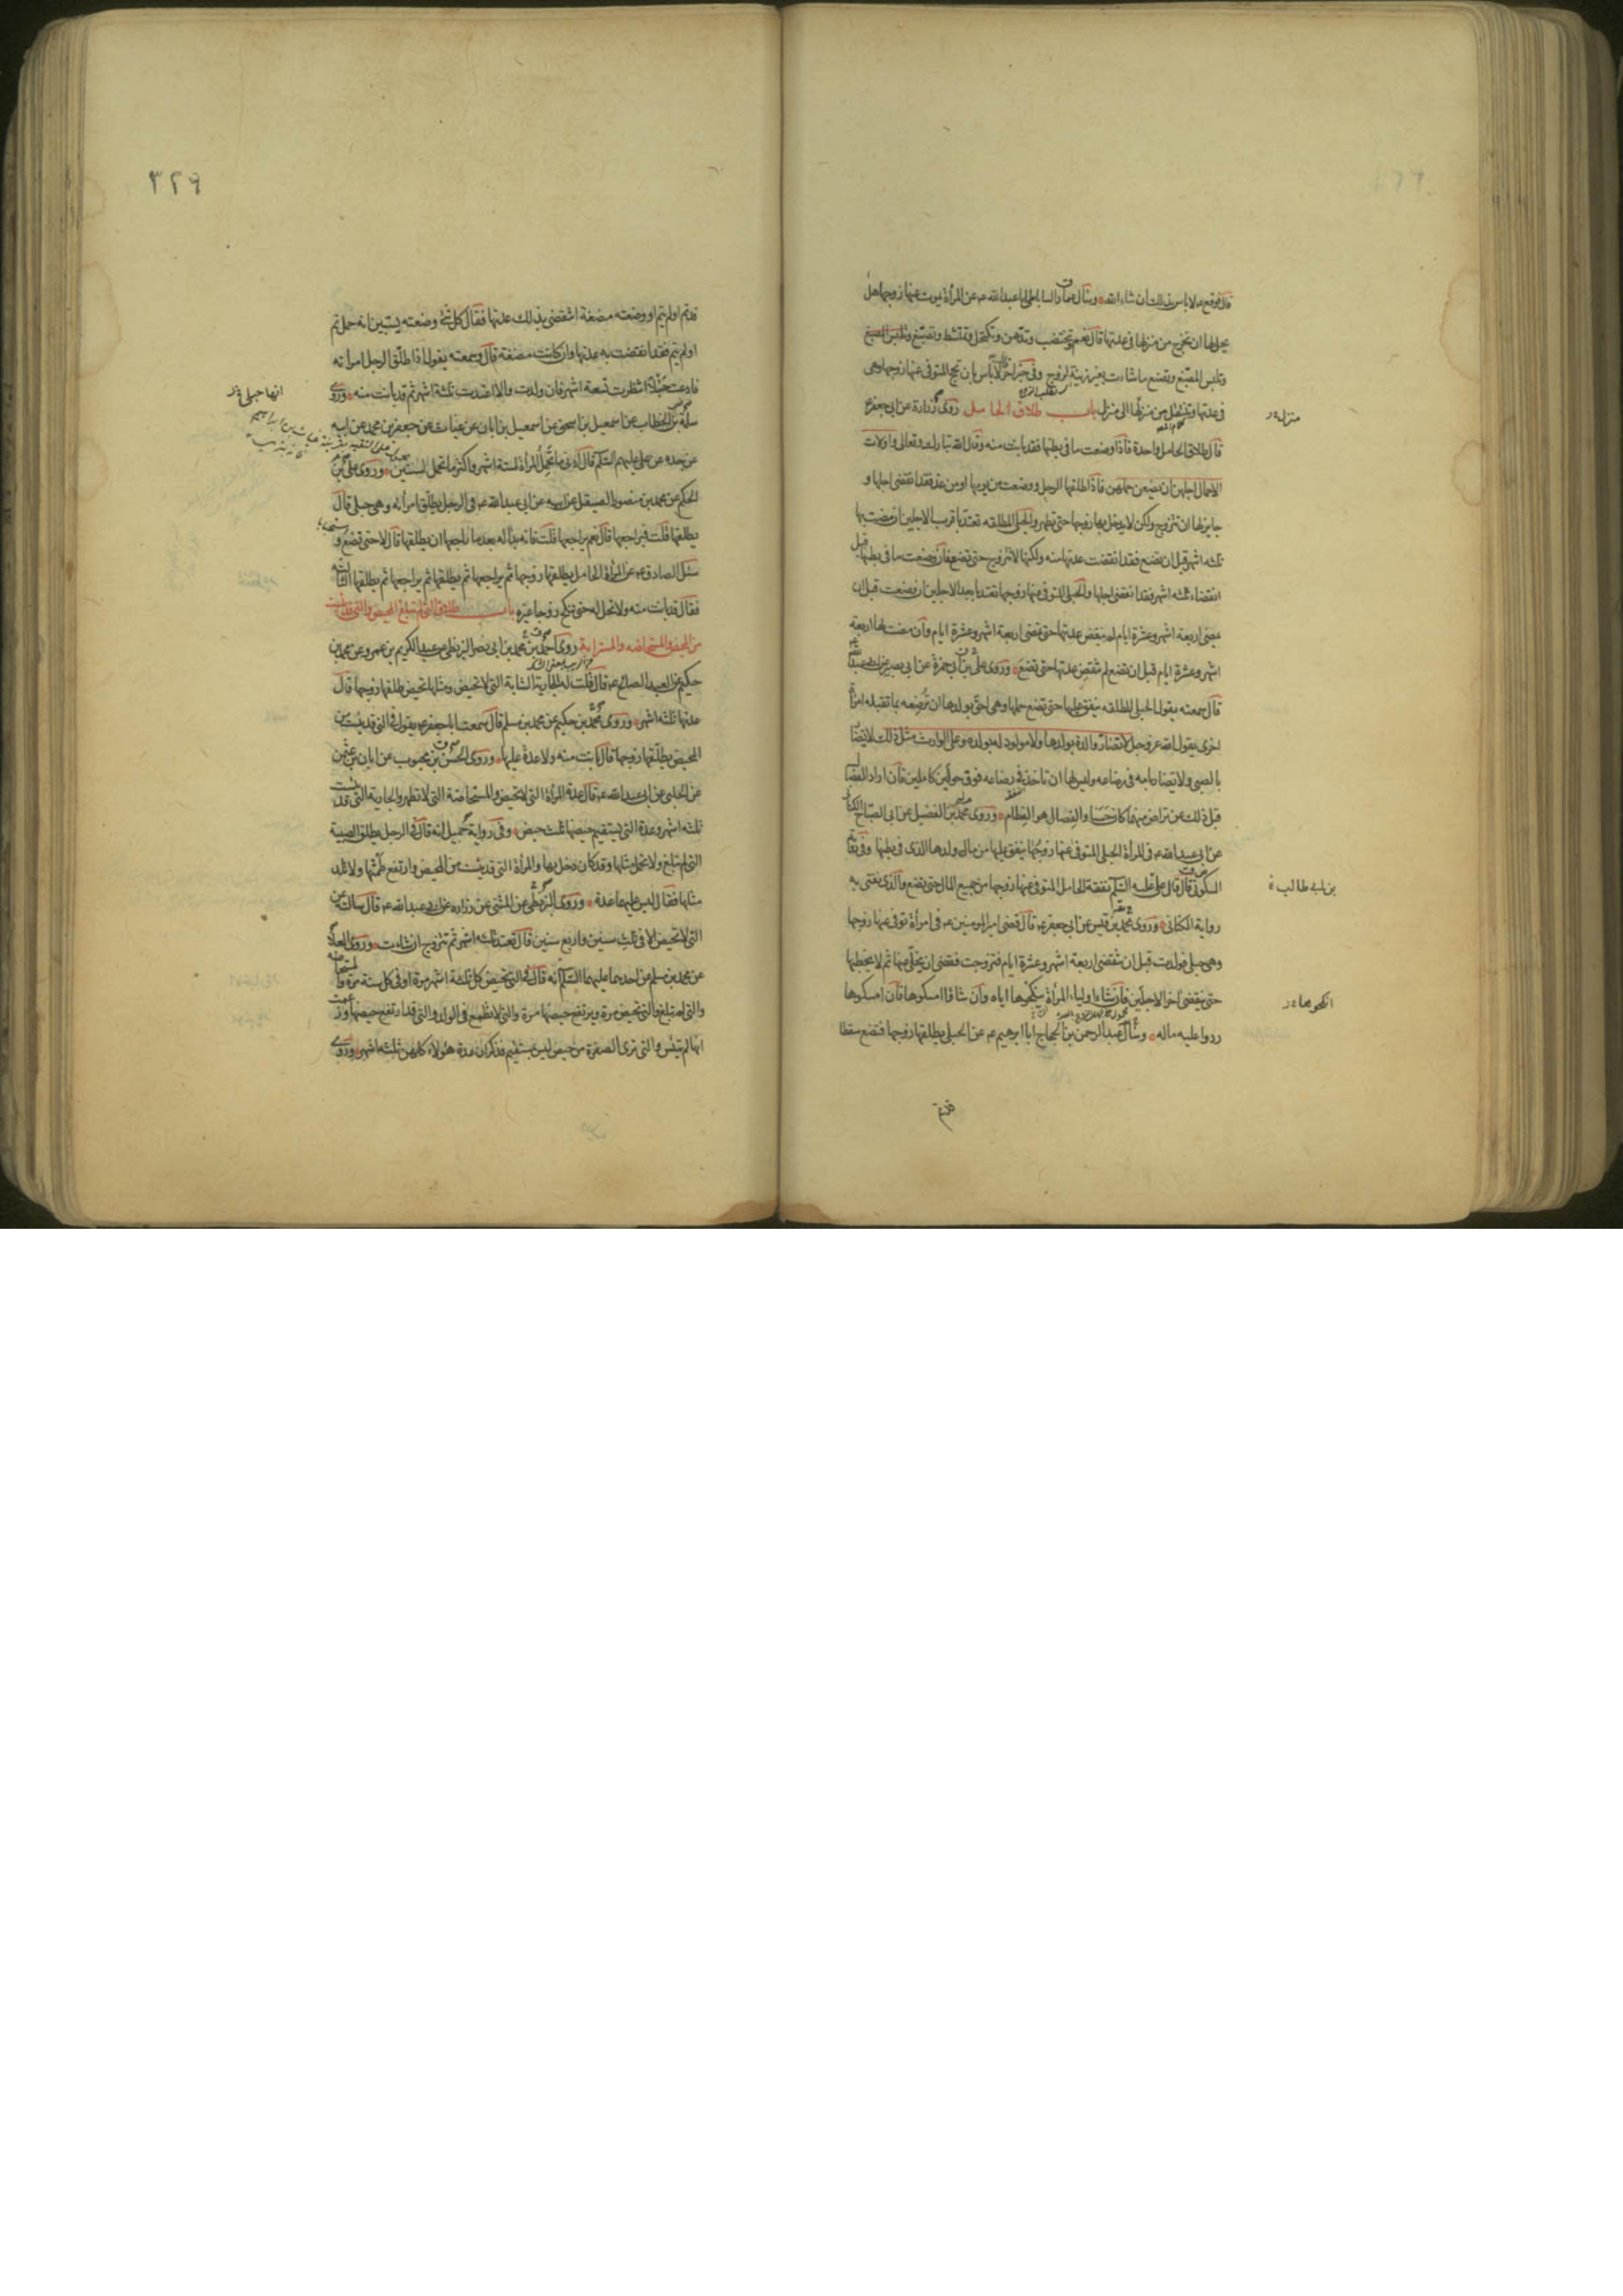 قال فوقع ع لا بأس بذلك ان شاء الله وسأل عمار الساباطي ابا عبد الله ع عن المرأة يموت عنها زوجها هل
يحل لها ان تخرج من منزلها في عدتها قال نعم وتختضب وتدهن وتكتحل وتمتشط وتصبغ وتلبس المصبغ
وتصنع ما شاءت بغير زينة لزوج وفي خبر اخر قال لا بأس بان تحج المتوفى عنها زوجها وهي
في عدتها وتنتقل من منزل الى منزل باب طلاق الحامل روى زرارة عن ابي جعفر ع
قال طلاق الحامل واحدة فاذا وضعت ما في بطنها فقد بانت منه وقال الله تبارك وتعالى واولات
الاحمال اجلهن ان يضعن حملهن فاذا طلقها الرجل ووضعت من يومها او من غد فقد انقضى اجلها و
جايز لها ان تتزوج ولكن لا يدخل بها زوجها حتى تطهر والحبلى المطلقه تعتد باقرب الاجلين ان مضت بها
ثلثه اشهر قبل ان تضع فقد انقضت عدتها منه ولكنها لا تتزوج حتى تضع فان وضعت ما في بطنها قبل
انقضاء ثلثه اشهر فقد انقضى اجلها والحبلى المتوفى عنها زوجها تعتد بابعد الاجلين ان وضعت قبل ان
يمضى اربعة اشهر وعشرة ايام لم ينقض عدتها حتى تمضى اربعة اشهر وعشرة ايام وان مضت لها اربعة
اشهر وعشرة ايام قبل ان تضع لم تنقض عدتها حتى تضع وروى علي بن ابي حمزة عن ابي بصير عن ابي عبد الله ع
قال سمعته يقول الحبلى المطلقه ينفق عليها حتى تضع حملها وهي احق بولدها ان ترضعه بما تقبله امرأة
اخرى يقول الله عز وجل لا تضار والدة بولدها ولا مولود له بولده وعلى الوارث مثل ذلك لا يضار
بالصبي ولا يضار بامه في رضاعه وليس لها ان تاخذ في رضاعه فوق حولين كاملين فان اراد الفصال
قبل ذلك عن تراض منهما كان حسنا والفصال هو الفطام وروى محمد بن الفضيل عن ابي الصباح الكناني
عن ابي عبد الله ع في المرأة الحبلى المتوفى عنها زوجها ينفق عليها من مال ولدها الذى في بطنها وفي رواية
السكوني قال قال علي عليه السلم نفقة الحامل المتوفى عنها زوجها من جميع المال حتى تضع والذى نفتي به
رواية الكناني وروى محمد بن قيس عن ابي جعفر ع قال قضى امير المومنين ع في امرأة توفى عنها زوجها
وهي حبلى فولدت قبل ان تنقضى اربعة اشهر وعشرة ايام فتزوجت فقضى ان يخلى عنها ثم لا يخطبها
حتى ينقضى اخر الاجلين فان شاء اولياء المرأة ينكحوها اياه وان شاؤا امسكوها فان امسكوها
ردوا عليه ماله وسأل عبد الرحمن بن الحجاج ابا ابرهيم ع عن الحبلى يطلقها زوجها فتضع سقطا
منزله
بن ابي طالب
انكحوها
قد تم
٣٢٩
قد تم او لم يتم او وضعته مضغة اتنقضى بذلك عدتها فقال كل شئ وضعته يستبين انه حمل تم
او لم يتم فقد انقضت به عدتها وان كانت مضغة قال وسمعته يقول اذا طلق الرجل امراته
فادعت حبلا انتظرت تسعة اشهر فان ولدت والا اعتدت ثلثة اشهر ثم قد بانت منه وروى
سلمة بن الخطاب عن اسمعيل بن اسحق عن اسمعيل بن ابان عن غياث عن جعفر بن محمد عن ابيه
عن جده عن علي عليهم السلم قال ادنى ما تحمل المرأة لستة اشهر واكثر ما تحمل لسنتين وروى علي بن
الحكم عن محمد بن منصور الصيقل عن ابيه عن ابي عبد الله ع في الرجل يطلق امرأته وهي حبلى قال
يطلقها قلت فيراجعها قال نعم يراجعها قلت فانه بدا له بعد ما راجعها ان يطلقها قال لا حتى تضع و
سئل الصادق ع عن المرأة الحامل يطلقها زوجها ثم يراجعها ثم يطلقها ثم يراجعها ثم يطلقها الثالثه
فقال قد بانت منه ولا تحل له حتى تنكح زوجا غيره باب طلاق التي لم تبلغ المحيض والتي قد يئست
من المحيض والمستحاضه والمسترابة روى احمد بن محمد بن ابي نصر البزنطي عن عبد الكريم بن عمرو عن محمد بن
حكيم عن العبد الصالح ع قال قلت له الجارية الشابة التي لا تحيض ومثلها تحيض طلقها زوجها قال
عدتها ثلثه اشهر وروى محمد بن حكيم عن محمد بن مسلم قال سمعت ابا جعفر ع يقول في التي قد يئست من
المحيض يطلقها زوجها قال بانت منه ولا عدة عليها وروى الحسن بن محبوب عن ابان بن عثمن
عن الحلبي عن ابي عبد الله ع قال عدة المرأة التي لا تحيض والمستحاضة التي لا تطهر والجارية التي قد يئست
ثلثه اشهر وعدة التي يستقيم حيضها ثلث حيض وفي رواية جميل انه قال في الرجل يطلق الصبية
التي لم تبلغ ولا تحمل مثلها وقد كان دخل بها والمرأة التي قد يئست من المحيض وارتفع طمثها ولا تلد
مثلها فقال ليس عليهما عدة وروى البزنطي عن المثنى عن زراره عن ابي عبد الله ع قال سالته عن
التي لا تحيض الا في ثلث سنين واربع سنين قال تعتد ثلثه اشهر ثم تتزوج ان شاءت وروى العلا
عن محمد بن مسلم عن احدهما عليهما السلم انه قال في التي تحيض كل ثلثة اشهر مرة او في كل ستة مرة والمستحاضه
والتي لم تبلغ والتي تحيض مرة ويرتفع حيضها مرة والتي لا تطمع في الولد والتي قد ارتفع حيضها وزعمت
انها لم تيئس والتي ترى الصفرة من حيض ليس بمستقيم فذكر ان عدة هؤلاء كلهن ثلثه اشهر وروى
انها حبلى